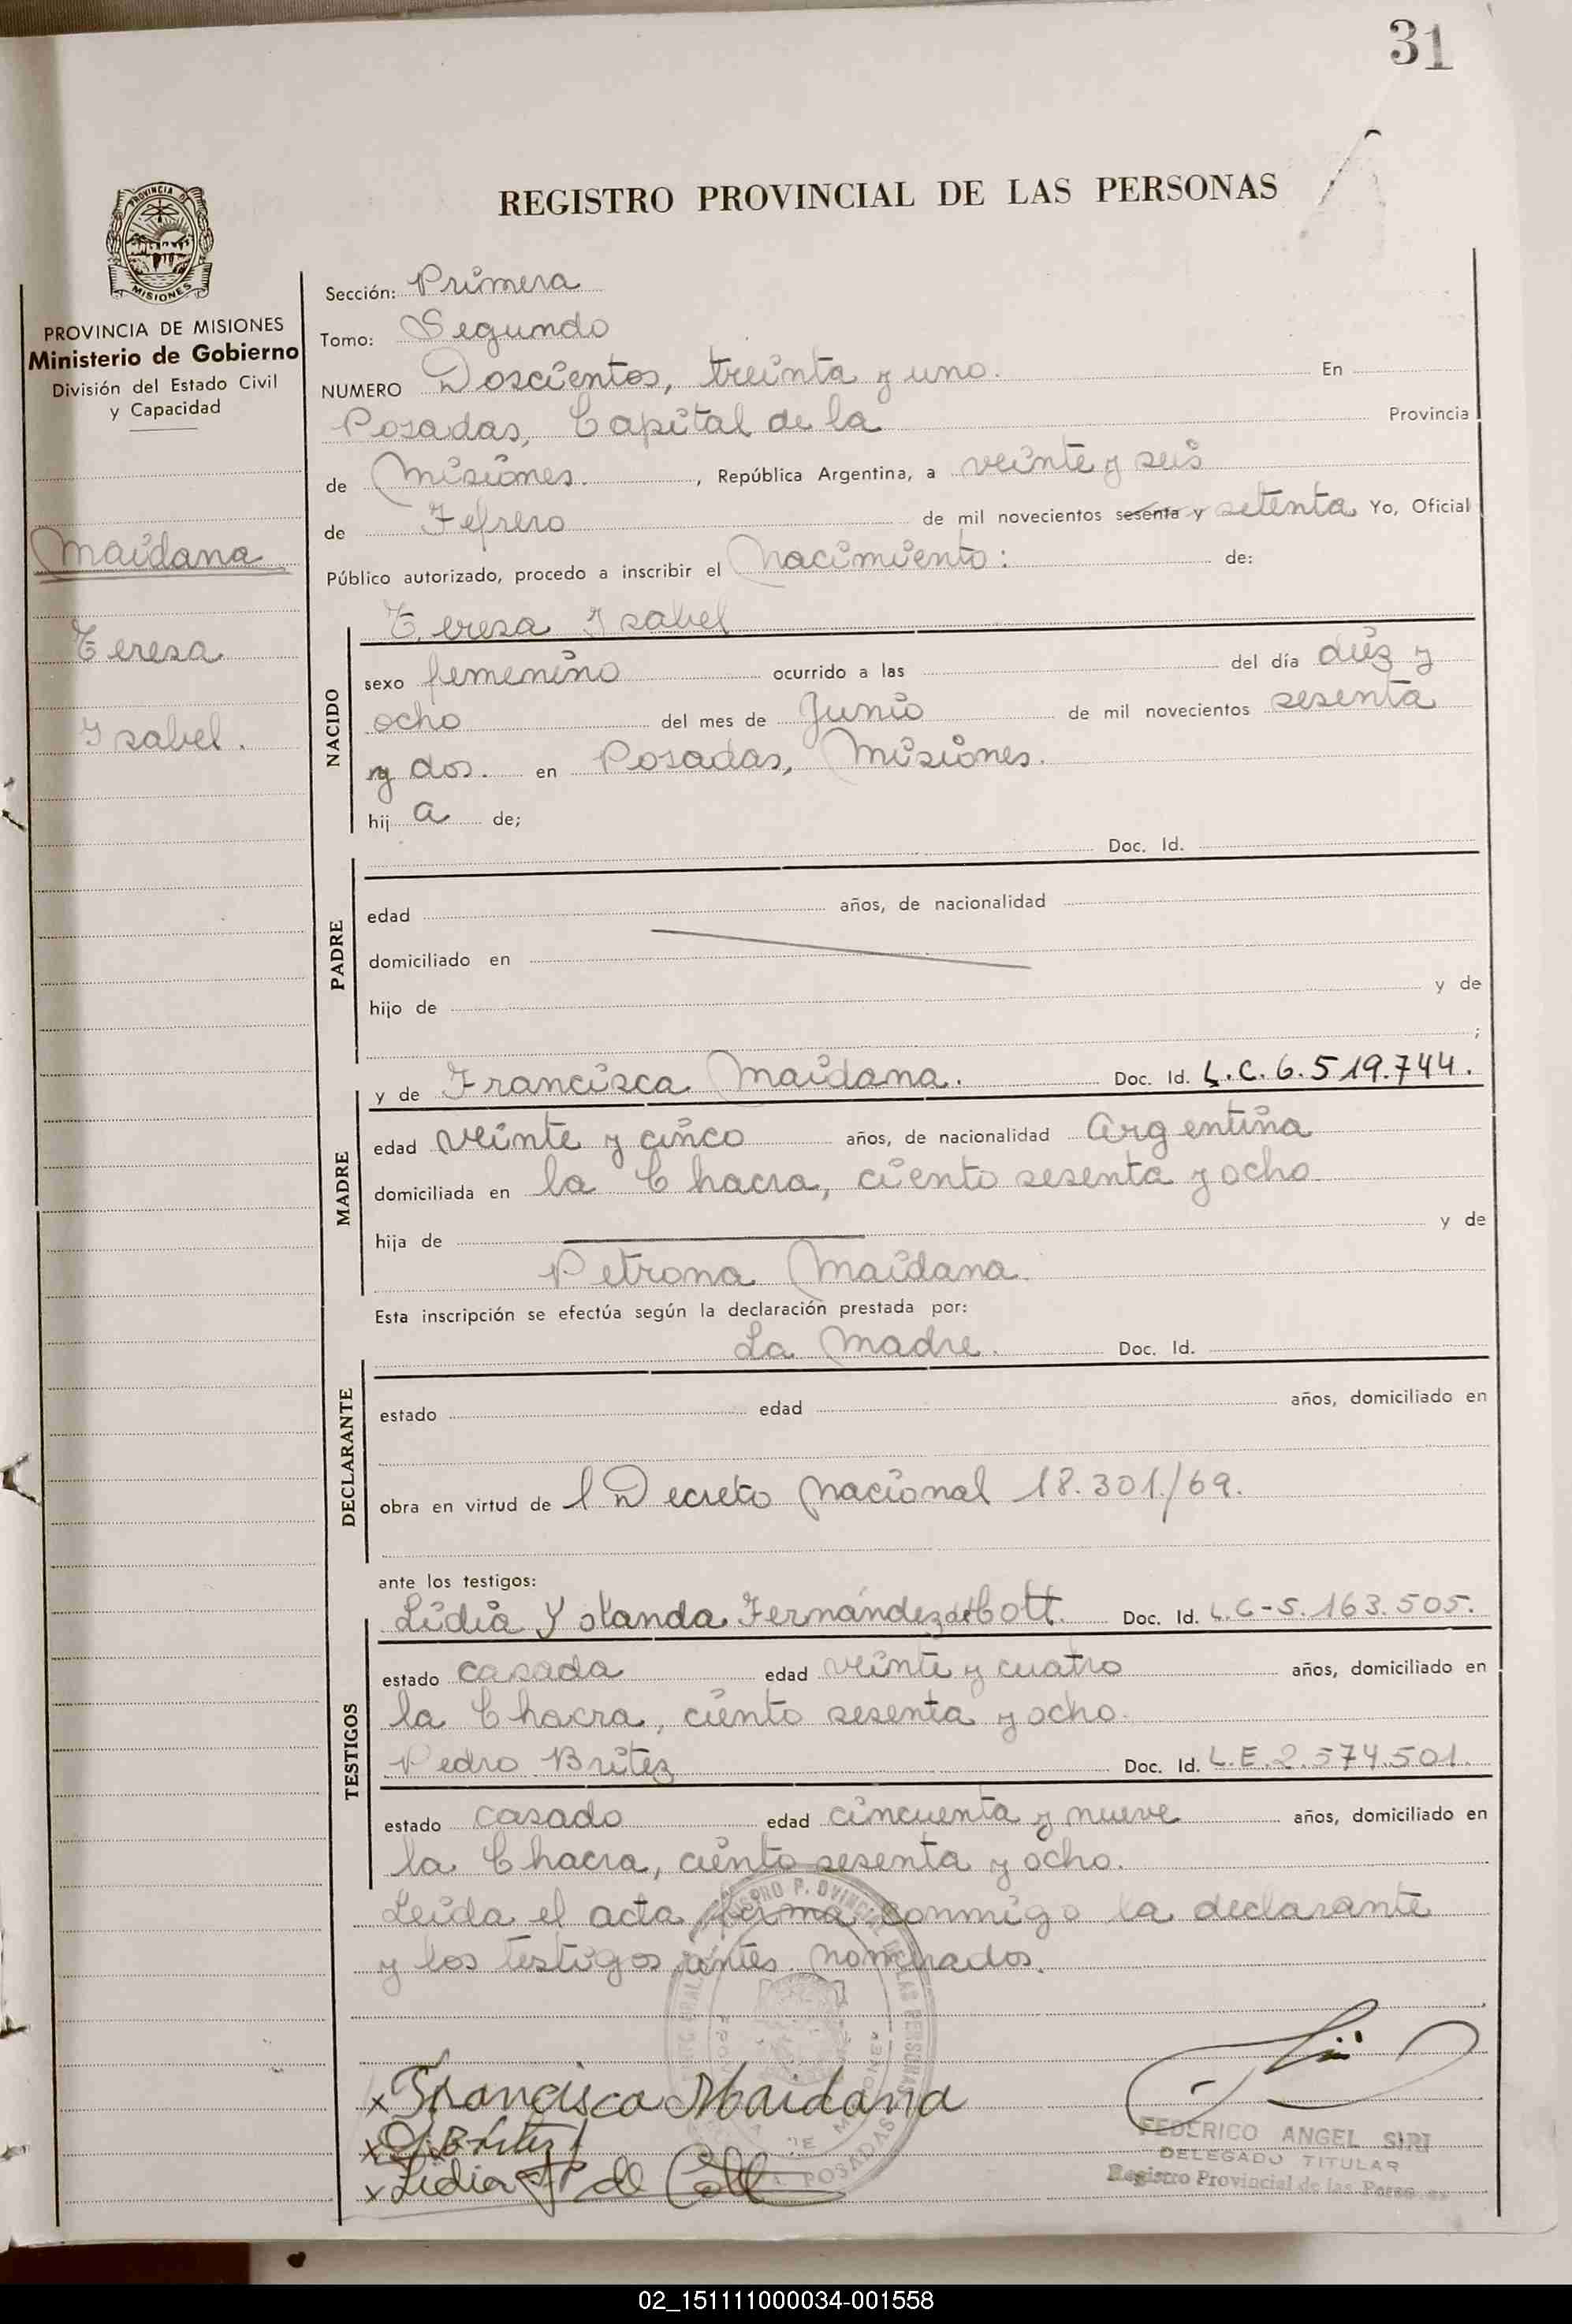 31
REGISTRO PROVINCIAL DE LAS PERSONAS
PROVINCIA DE
MISIONES
PROVINCIA DE MISIONES
Ministerio de Gobierno
División del Estado Civil
y Capacidad
Maidana
Teresa
Isabel.
Sección: Primera
Tomo: Segundo
NUMERO Doscientos, treinta y uno. En
Posadas, Capital de la Provincia
de Misiones. , República Argentina, a veinte y seis
de Febrero de mil novecientos sesenta y setenta Yo, Oficial
Público autorizado, procedo a inscribir el Nacimiento: de:
NACIDO
Teresa Isabel
sexo femenino ocurrido a las del día diez y
ocho del mes de Junio de mil novecientos sesenta
y dos. en Posadas, Misiones.
hij a de;
PADRE
Doc. Id.
edad años, de nacionalidad
domiciliado en
hijo de y de
;
MADRE
y de Francisca Maidana. Doc. Id. L.C. 6.519.744.
edad veinte y cinco años, de nacionalidad Argentina
domiciliada en la Chacra, ciento sesenta y ocho
hija de y de
Petrona Maidana.
Esta inscripción se efectúa según la declaración prestada por:
DECLARANTE
La Madre. Doc. Id.
estado edad años, domiciliado en
obra en virtud de l Decreto Nacional 18.301./69.
ante los testigos:
TESTIGOS
Lidia Yolanda Fernández de Cott. Doc. Id. L.C-5.163.505.
estado casada edad veinte y cuatro años, domiciliado en
la Chacra, ciento sesenta y ocho.
Pedro Britez Doc. Id. L.E.2.574.501.
estado casado edad cincuenta y nueve años, domiciliado en
la Chacra, ciento sesenta y ocho.
Leida el acta firma conmigo la declarante
y los testigos antes nombrados.
x Francisca Maidana
x Britez
x Lidia F de Cott
FEDERICO ANGEL SIRI
DELEGADO TITULAR
Registro Provincial de las Personas
02_151111000034-001558